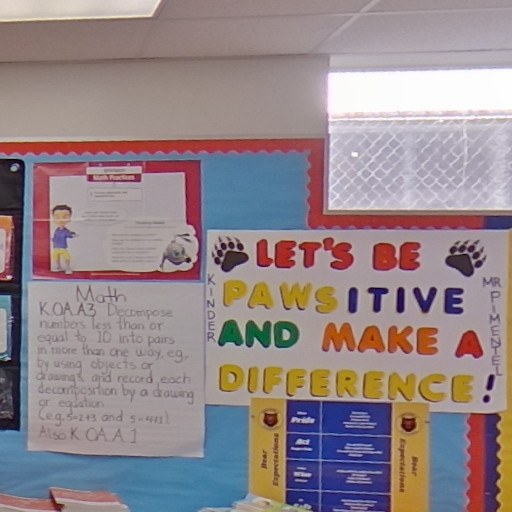 Math Practices
Math
K.OA.A3 Decompose
numbers less than or
equal to 10 into pairs
in more than one way, e.g.,
by using objects or
drawings, and record each
decomposition by a drawing
or equation.
(e.g. 5=2+3 and 5=4+1)
Also K.OA.A.1
LET'S BE
PAWSITIVE
AND MAKE A
DIFFERENCE!
KINDER
MR PIMENTEL
Pride
Act
Wise
Bear Expectations
Bear Expectations